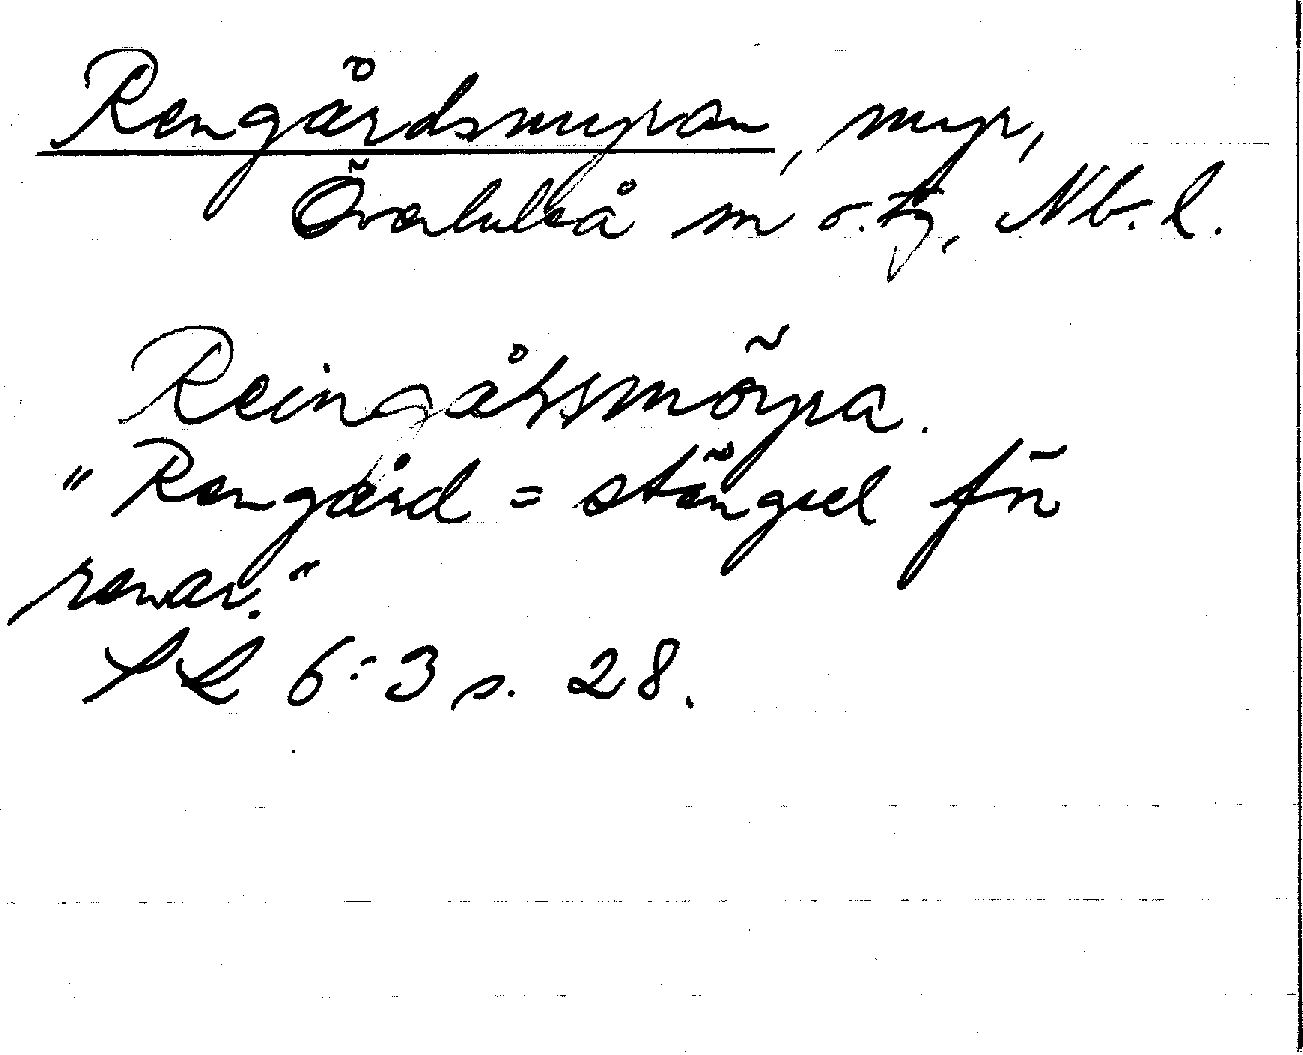 Rengårdsmyran, myr,
Överluleå sn o. tg, Nb. l.
Reingåḷsmöyra.
"Rengård = stängsel för
renar."
SL 6:3 s. 28.